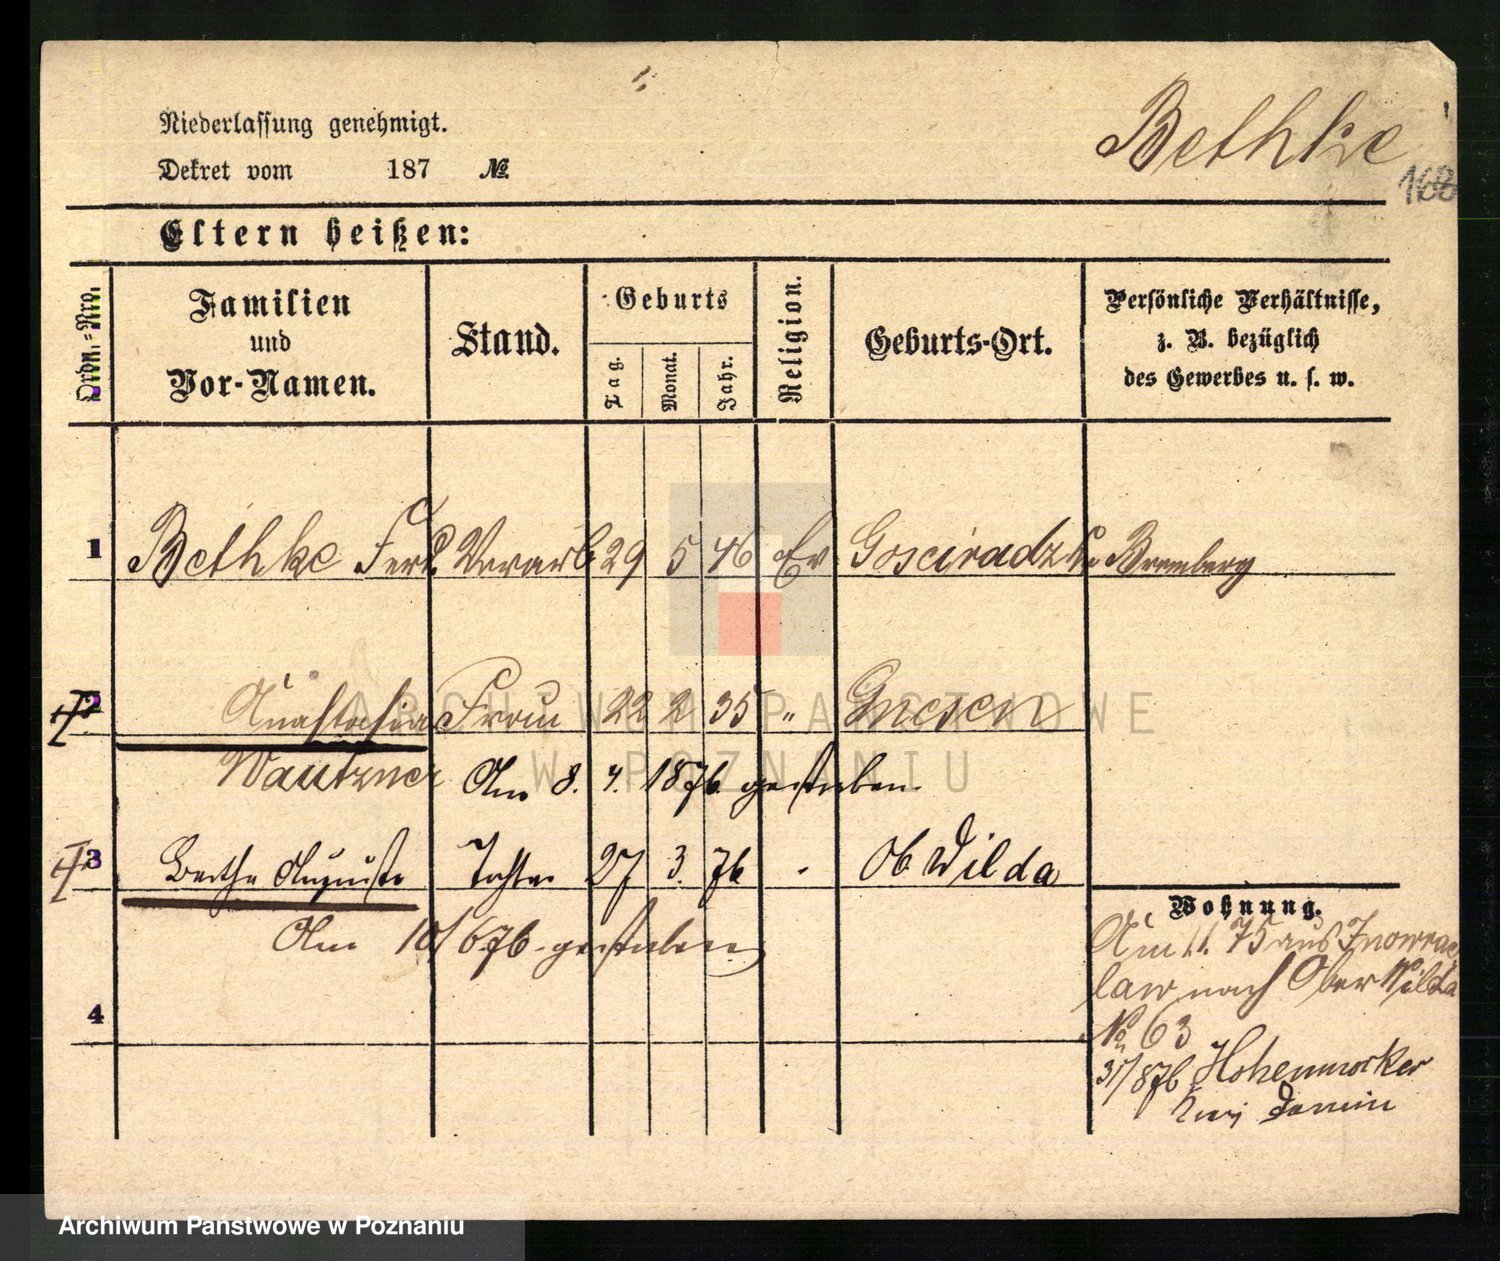 Niederlassung genehmigt.
Dekret vom 187 №
Bethke
168
Eltern heißen:
Ordn.-Nro.
Familien
und
Vor-Namen.
Stand.
Geburts
Tag.
Monat.
Jahr.
Religion.
Geburts-Ort.
Persönliche Verhältnisse,
z. B. bezüglich
des Gewerbes u. s. w.
1 Bethke Ferd. Vorarb 29 5 46 Ev Gosciradz Kr Bromberg
2 Anastasia Frau 22 2 35 " Gnesen
Wautzner Am 8. 4. 1876 gestorben.
3 Bertha Auguste Tochter 27 3. 76 " Ob Wilda
Am 10/6 76 gestorben
4
Wohnung.
Am 1.1. 75 aus Inowrac
law nach Ober Wilda
No 63
31/8 76 Hohenmocker
Kreis Demmin
ARCHIWUM PAŃSTWOWE
W POZNANIU
Archiwum Państwowe w Poznaniu